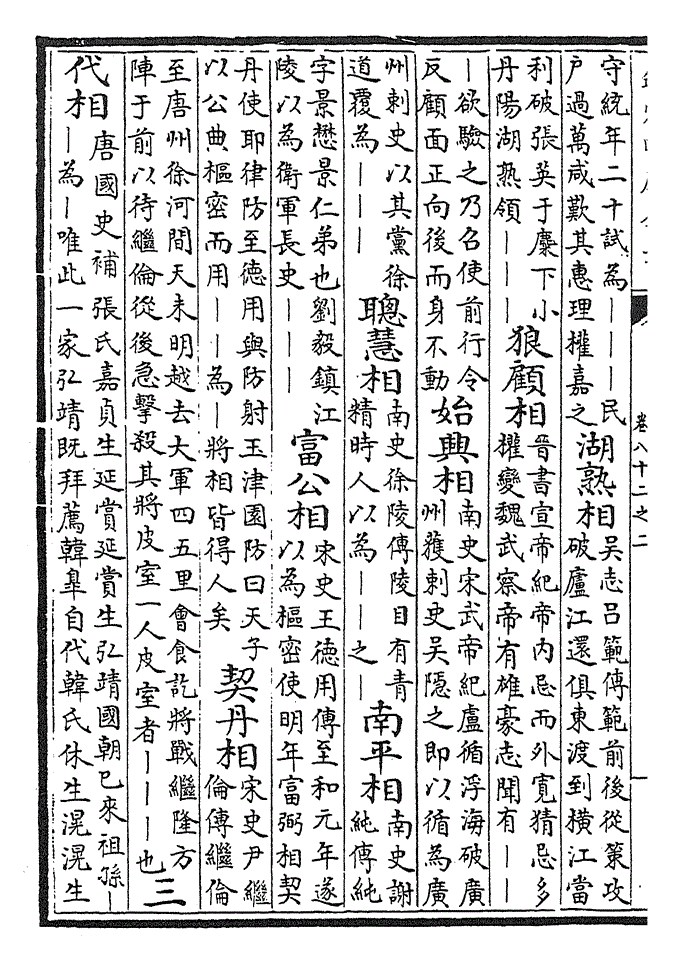 卷八十二之二
守統年二十試為｜｜｜民
户過萬咸歎其惠理權嘉之
湖熟相
吳志吕範傳範前後從策攻
破廬江還俱東渡到横江當
利破張英于麋下小
丹陽湖熟領｜｜｜
狼顧相
晉書宣帝紀帝内忌而外寛猜忌多
權變魏武察帝有雄豪志聞有｜｜
｜欲驗之乃召使前行令
反顧面正向後而身不動
始興相
南史宋武帝紀盧循浮海破廣
州獲刺史吳隱之即以循為廣
州刺史以其黨徐
道覆為｜｜｜
聰慧相
南史徐陵傳陵目有青
精時人以為｜｜之｜
南平相
南史謝
純傳純
字景懋景仁弟也劉毅鎮江
陵以為衛軍長史｜｜｜
富公相
宋史王德用傳至和元年遂
以為樞密使明年富弼相契
丹使耶律防至德用與防射玉津園防曰天子
以公典樞密而用｜｜為｜將相皆得人矣
契丹相
宋史尹繼
倫傳繼倫
至唐州徐河間天未明越去大軍四五里會食訖將戰繼隆方
陣于前以待繼倫從後急擊殺其將皮室一人皮室者｜｜｜也
三
代相
唐國史補張氏嘉貞生延賞延賞生弘靖國朝已來祖孫｜
｜為｜唯此一家弘靖既拜薦韓臯自代韓氏休生滉滉生